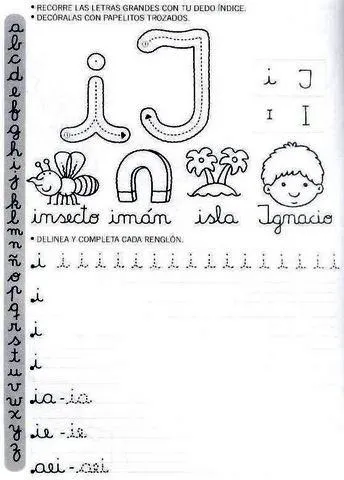 • RECORRE LAS LETRAS GRANDES CON TU DEDO ÍNDICE.
• DECÓRALAS CON PAPELITOS TROZADOS.
i I
i I
I I
insecto imán isla Ignacio
• DELINEA Y COMPLETA CADA RENGLÓN.
i i i i i i i i i i i i i i i i i
i
i
i
ia - ia
ie - ie
aei - aei
a
b
c
d
e
f
g
h
i
j
k
l
m
n
ñ
o
p
q
r
s
t
u
v
w
x
y
z